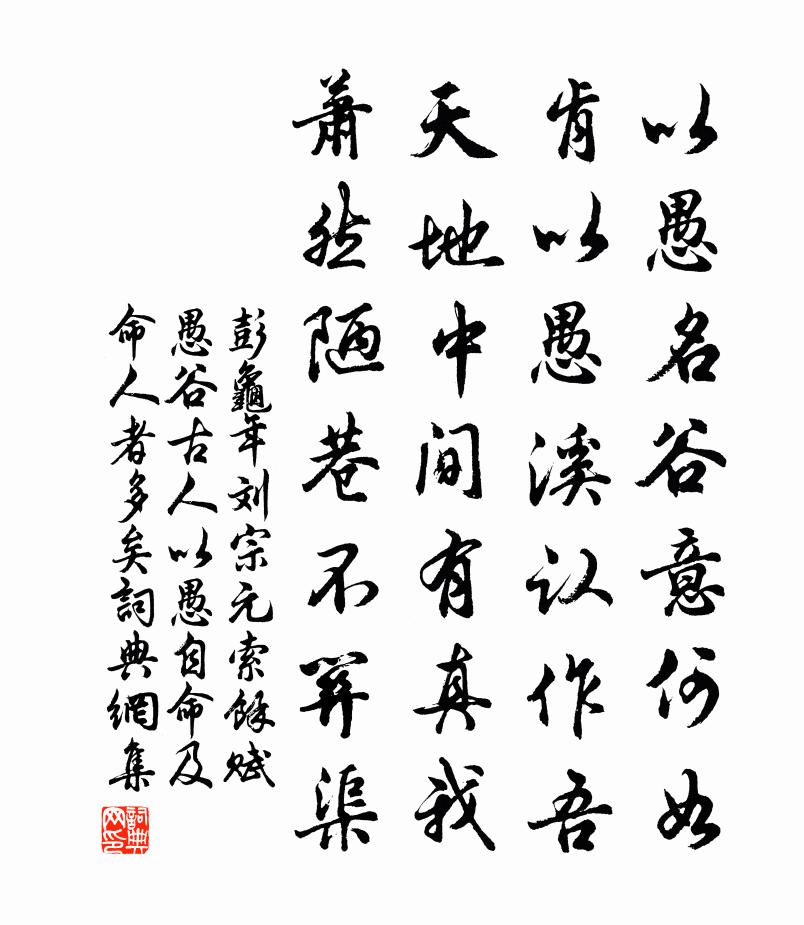 以愚名谷意何如
肯以愚溪认作吾
天地中间有真我
萧然陋巷不算渠
彭龜年刘宗元索餘赋
愚谷古人以愚自命及
命人者多矣詞典網集
詞典
网印